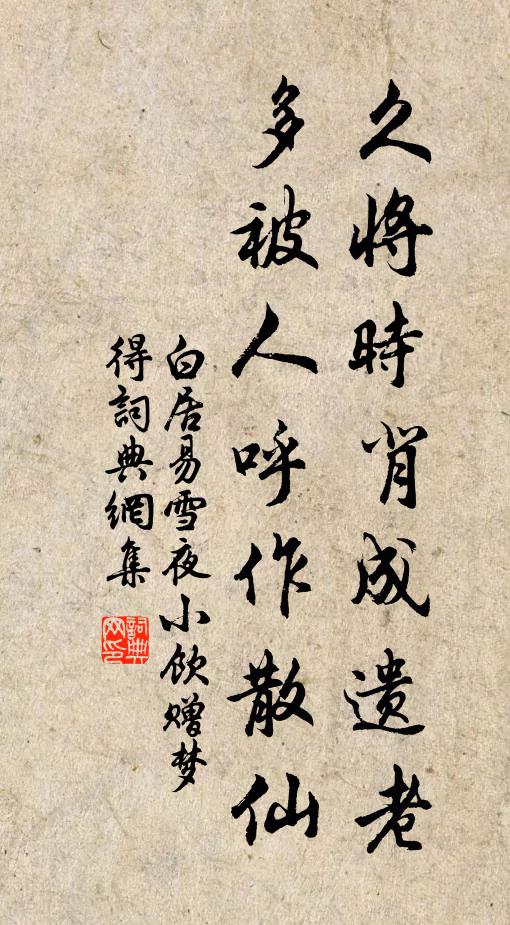 久將時背成遺老
多被人呼作散仙
白居易雪夜小飲贈梦
得詞典網集
詞典网印